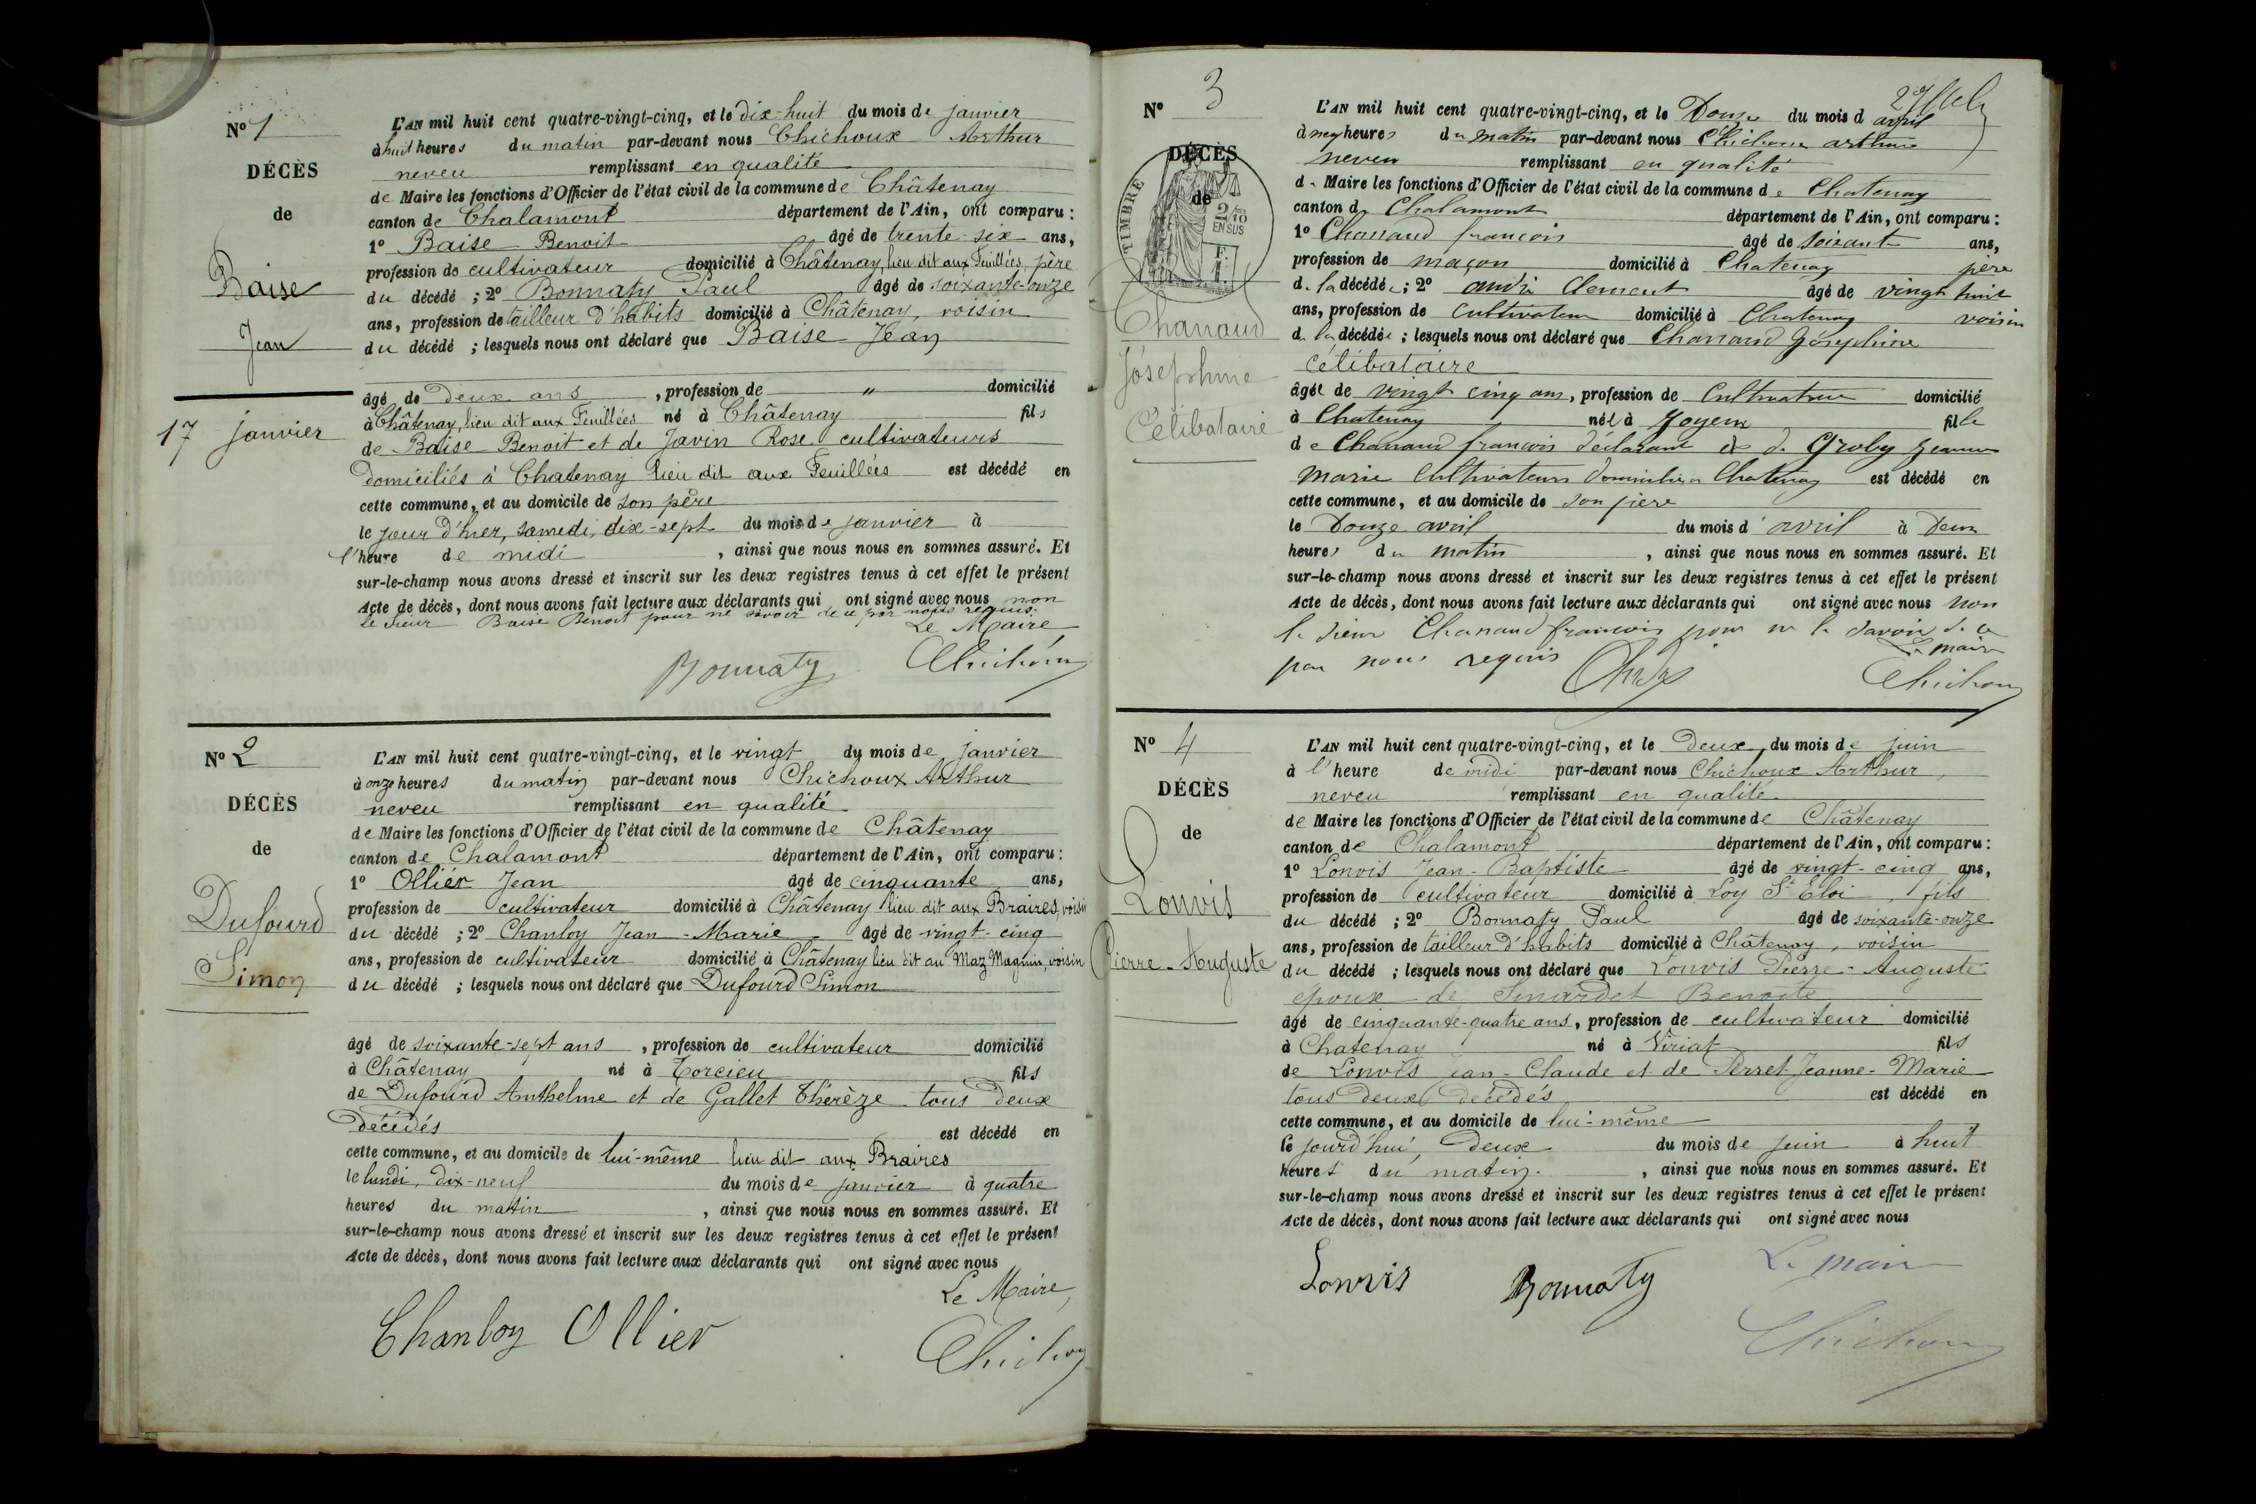 N° 1
DÉCÈS
de
Baise
Jean
17 janvier
L'AN mil huit cent quatre-vingt-cinq, et le dix-huit du mois de janvier
à huit heures du matin par-devant nous Chichoux Arthur
neveu remplissant en qualité
de Maire les fonctions d'Officier de l'état civil de la commune de Châtenay
canton de Chalamont département de l'Ain, ont comparu :
1° Baise Benoit âgé de trente-six ans,
profession de cultivateur domicilié à Châtenay, lieu dit aux Feuillées, père
du décédé ; 2° Bonnaty Paul âgé de soixante-onze
ans, profession de tailleur d'habits domicilié à Châtenay, voisin
du décédé ; lesquels nous ont déclaré que Baise Jean
âgé de deux ans , profession de " domicilié
à Châtenay, lieu dit aux Feuillées né à Châtenay fils
de Baise Benoit et de Javin Rose cultivateurs
domiciliés à Chatenay lieu dit aux Feuillées est décédé en
cette commune, et au domicile de son père
le jour d'hier, samedi, dix-sept du mois de janvier à
l'heure de midi , ainsi que nous nous en sommes assuré. Et
sur-le-champ nous avons dressé et inscrit sur les deux registres tenus à cet effet le présent
Acte de décès, dont nous avons fait lecture aux déclarants qui ont signé avec nous non
le sieur Baise Benoit pour ne savoir de ce par nous requis.
Le Maire
Bonnaty Chichoux
N° 2
DÉCÈS
de
Dufourd
Simon
L'AN mil huit cent quatre-vingt-cinq, et le vingt du mois de janvier
à onze heures du matin par-devant nous Chichoux Arthur
neveu remplissant en qualité
de Maire les fonctions d'Officier de l'état civil de la commune de Châtenay
canton de Chalamont département de l'Ain, ont comparu :
1° Ollier Jean âgé de cinquante ans,
profession de cultivateur domicilié à Châtenay lieu dit aux Braires, voisin
du décédé ; 2° Chanloy Jean-Marie âgé de vingt-cinq
ans, profession de cultivateur domicilié à Châtenay lieu dit au Maz Magnin, voisin
du décédé ; lesquels nous ont déclaré que Dufourd Simon
âgé de soixante-sept ans , profession de cultivateur domicilié
à Châtenay né à Torcieu fils
de Dufourd Anthelme et de Gallet Thérèze tous deux
décédés est décédé en
cette commune, et au domicile de lui-même lieu dit aux Braires
le lundi, dix-neuf du mois de janvier à quatre
heures du matin , ainsi que nous nous en sommes assuré. Et
sur-le-champ nous avons dressé et inscrit sur les deux registres tenus à cet effet le présent
Acte de décès, dont nous avons fait lecture aux déclarants qui ont signé avec nous
Le Maire,
Chanloy Ollier Chichoux
N° 3
DÉCÈS
de
TIMBRE
2/10
EN SUS
Chanaud
Joséphine
Célibataire
L'AN mil huit cent quatre-vingt-cinq, et le Douze du mois d avril
à neuf heures du matin par-devant nous Chichoux arthur
neveu remplissant en qualité
de Maire les fonctions d'Officier de l'état civil de la commune de Chatenay
canton de Chalamont département de l'Ain, ont comparu :
1° Chanaud françois âgé de soixant ans,
profession de maçon domicilié à Chatenay père
de la décédée ; 2° andré Clement âgé de vingt huit
ans, profession de Cultivateur domicilié à Chatenay voisin
de la décédée ; lesquels nous ont déclaré que Chanaud Joséphine
célibataire
âgée de vingt cinq ans, profession de Cultivatrice domicilié
à Chatenay née à Joyeux fille
de Chanaud françois déclarant et de Groby Jeanne
Marie Cultivateurs domiciliés à Chatenay est décédé en
cette commune, et au domicile de son père
le Douze avril du mois d'avril à Deux
heures du matin , ainsi que nous nous en sommes assuré. Et
sur-le-champ nous avons dressé et inscrit sur les deux registres tenus à cet effet le présent
Acte de décès, dont nous avons fait lecture aux déclarants qui ont signé avec nous non
le sieur Chanaud françois pour ne le savoir de ce
par nous requis Le maire
Chichoux
N° 4
DÉCÈS
de
Lonvis
Pierre-Auguste
L'AN mil huit cent quatre-vingt-cinq, et le Deux du mois de juin
à l'heure de midi par-devant nous Chichoux Arthur,
neveu remplissant en qualité
de Maire les fonctions d'Officier de l'état civil de la commune de Châtenay
canton de Chalamont département de l'Ain, ont comparu :
1° Lonvis Jean-Baptiste âgé de vingt-cinq ans,
profession de cultivateur domicilié à Loy St Eloi, fils
du décédé ; 2° Bonnaty Paul âgé de soixante-onze
ans, profession de tailleur d'habits domicilié à Châtenay, voisin
du décédé ; lesquels nous ont déclaré que Lonvis Pierre-Auguste
époux de Sinardet Benoîte
âgé de cinquante-quatre ans, profession de cultivateur domicilié
à Chatenay né à Viriat fils
de Lonvis Jean-Claude et de Perret Jeanne-Marie
tous deux décédés est décédé en
cette commune, et au domicile de lui-même
le jourd'hui, deux du mois de juin à huit
heures du matin. , ainsi que nous nous en sommes assuré. Et
sur-le-champ nous avons dressé et inscrit sur les deux registres tenus à cet effet le présent
Acte de décès, dont nous avons fait lecture aux déclarants qui ont signé avec nous
Le maire
Lonvis Bonnaty
Chichoux